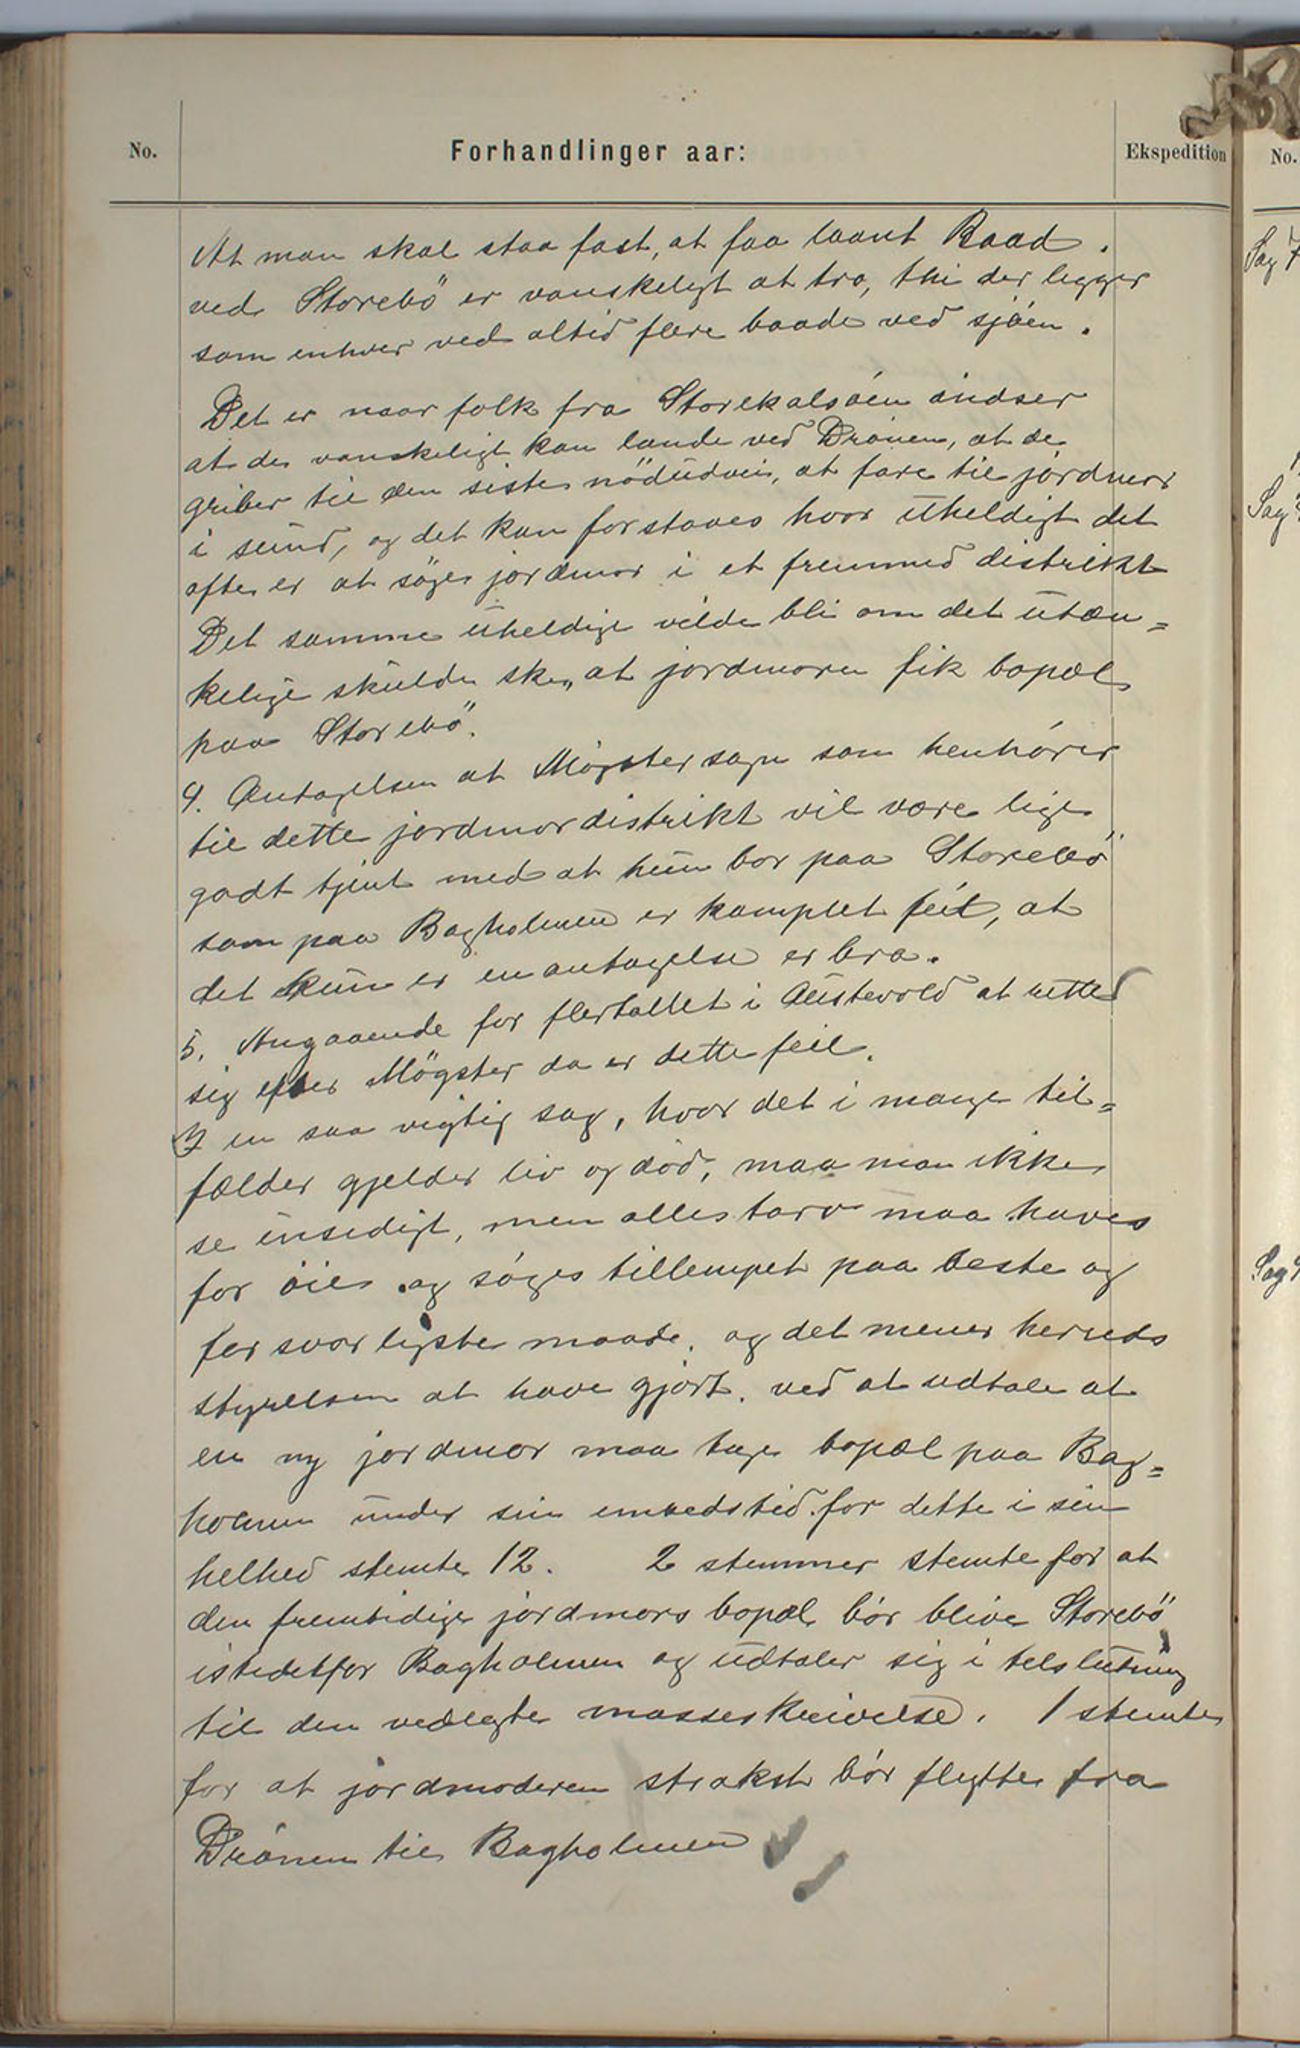 No.
Forhandlinger aar:
Ekspedition
No.
At man skal staa fast, at faa laant Baad.
ved Storebö er vanskeligt at tro, thi der ligger
som enhver ved altid flere baade ved sjöen.
Det er naar folk fra Storekalsöen indser
at de vanskeligt kan lande ved Drönen, at de
griber til den siste nödudvei, at fare til jordmor
i sund, og det kan forstaaes hvor uheldigt det
ofte er at söge jordmor i et fremmed distrikt
Det samme uheldige vilde bli om det utæn=
kelige skulde ske, at jordmoren fik bopæl
paa Storebö.
4. Antagelsen at Mögster sogn som henhörer
til dette jordmordistrikt vil være lige
godt tjent med at hun bor paa Storebö
som paa Bagholmen er komplet feil, at
det kun er en antagelse er bra.
5. Angaaende for flertallet i Austevold at rette
sig efter Mögster da er dette feil.
I en saa vigtig sag, hvor det i mange til=
fælder gjelder liv og död, maa man ikke
se ensidigt, men alles tarv maa haves
for öie og söges tillempet paa beste og
forsvarligste maade, og det mener herreds
styrelsen at have gjört. ved at udtale at
en ny jordmor maa tage bopæl paa Bag=
holmen under sin embedstid. for dette i sin
helhed stemte 12. 2 stemmer stemte for at
den fremtidige jordmors bopæl bör blive Storebö
istedetfor Bagholmen og udtaler sig i tilslutning
til den vedlegte masseskrivelse. 1 stemte
for at jordmoderen strakst bör flytte fra
Drönen til Bagholmen
Sag 7
Sag
Sag 9